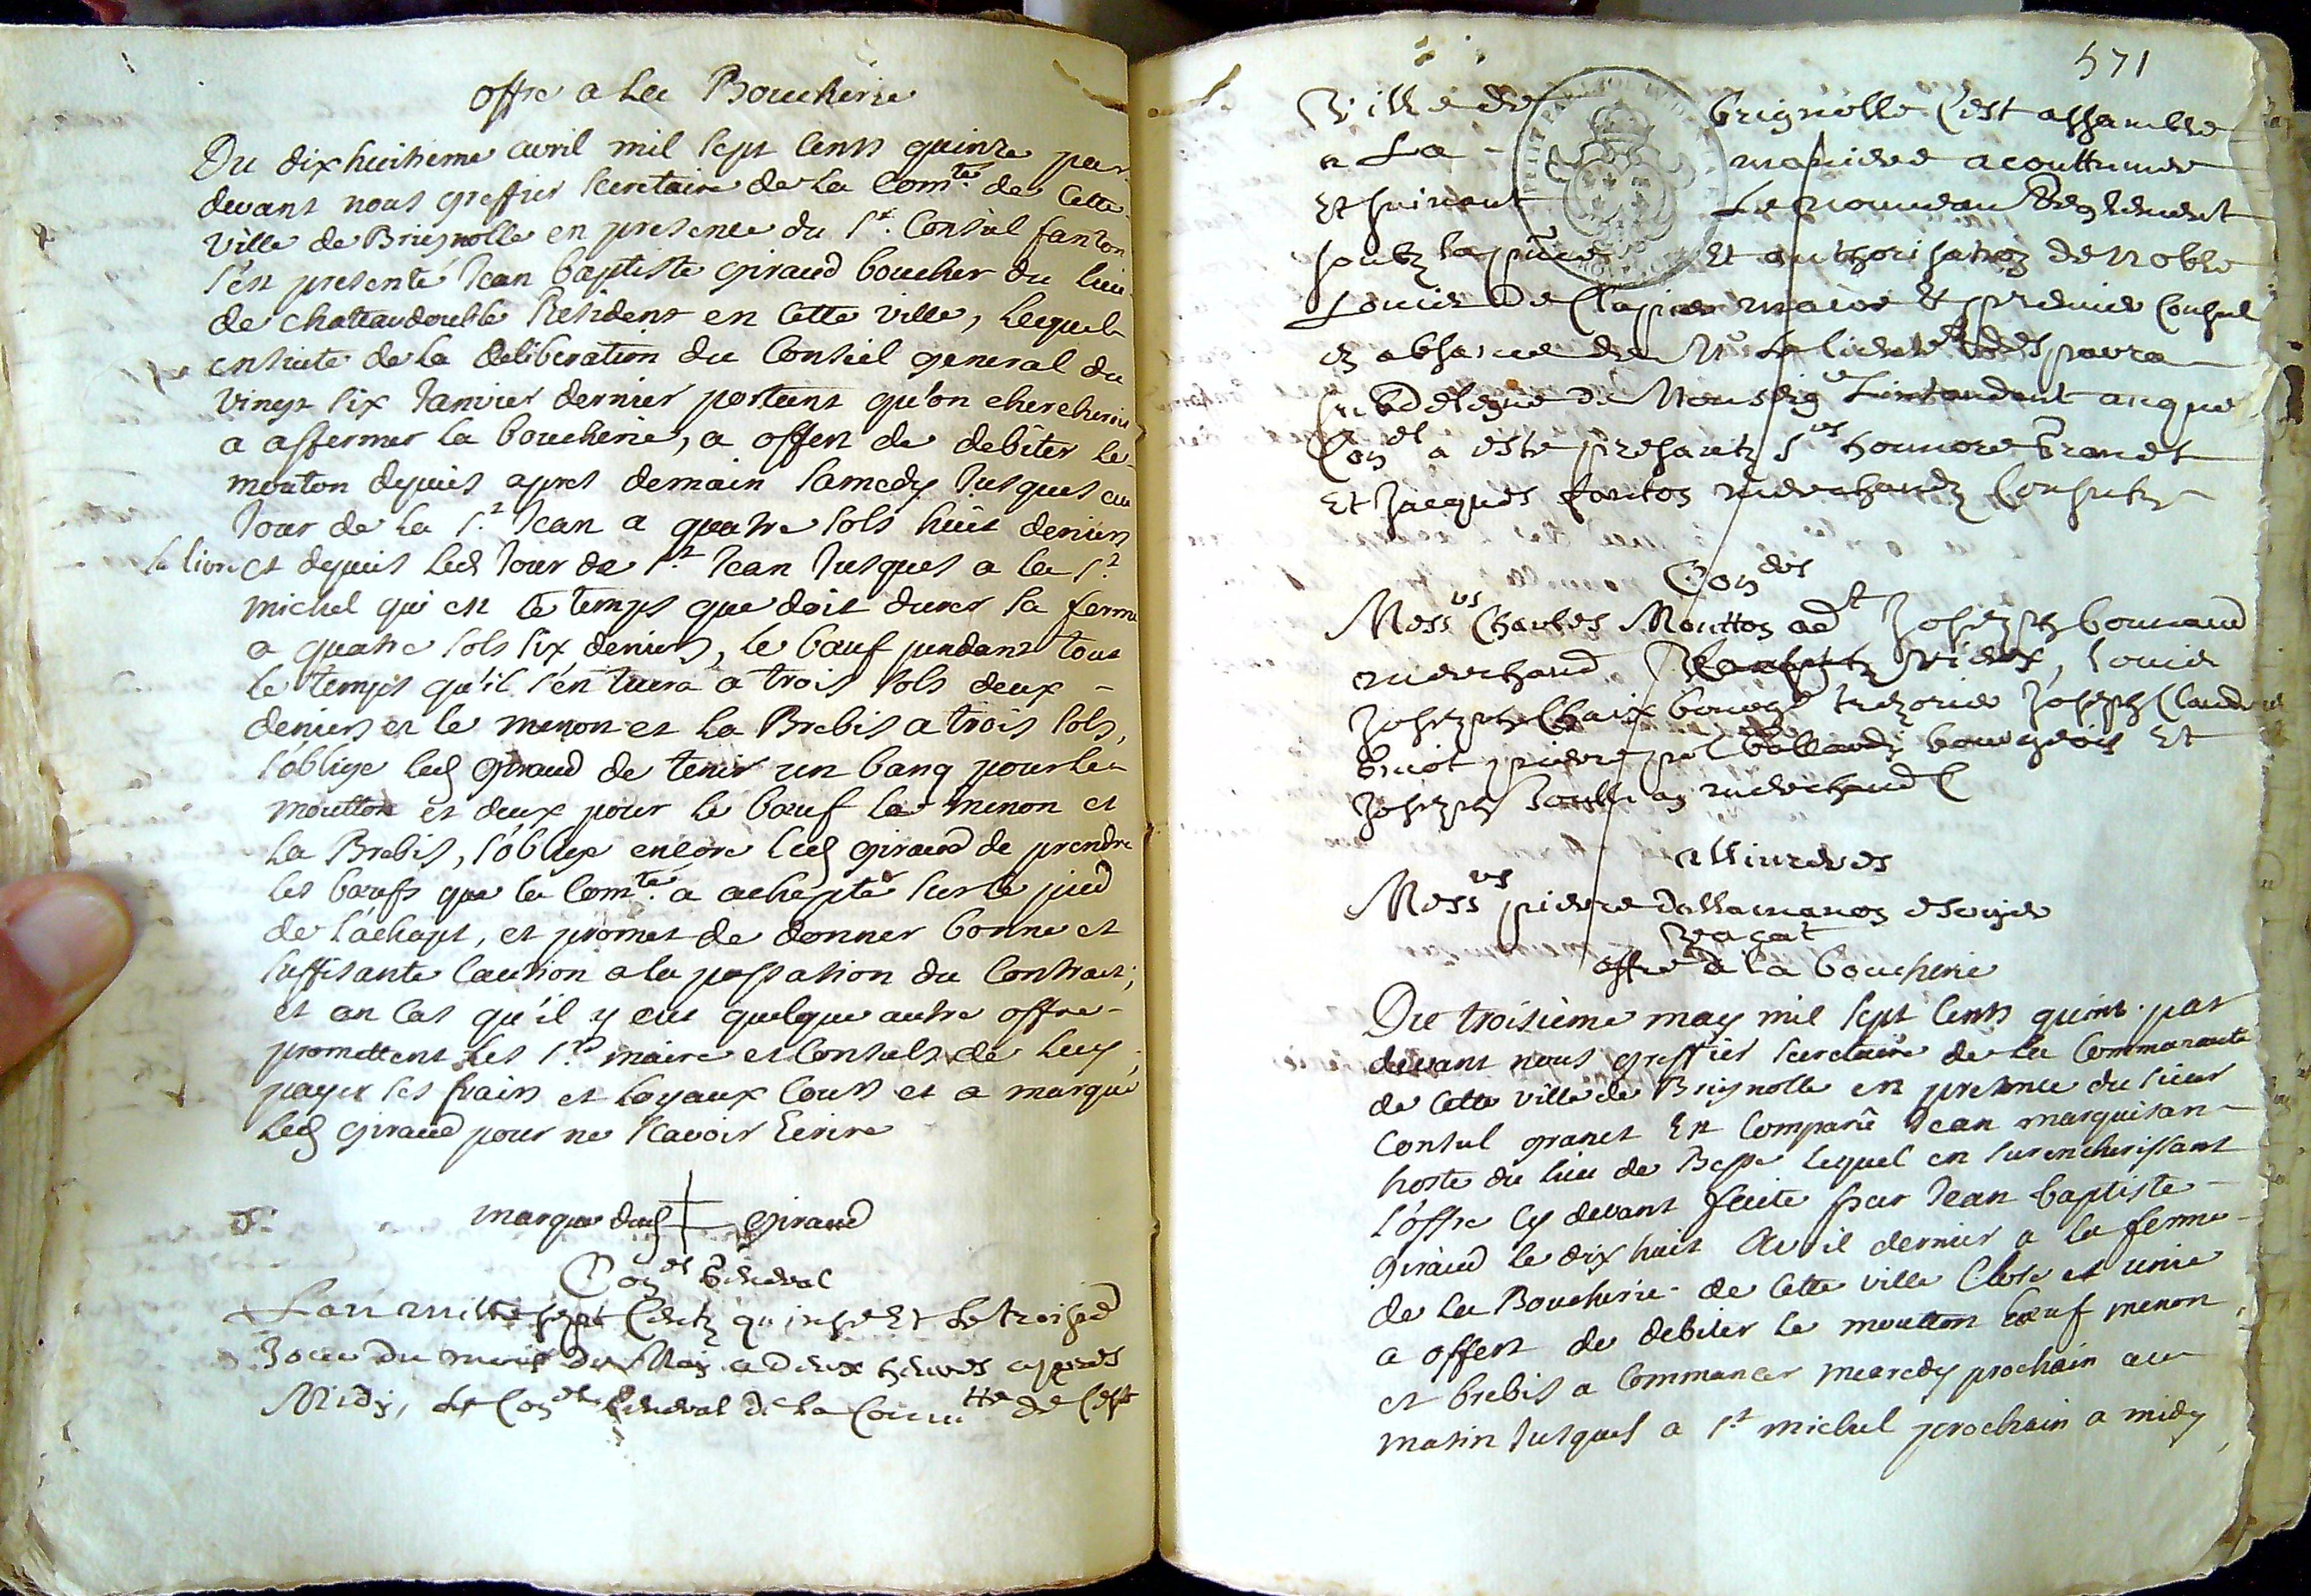 offre a la Boucherie
Du dixhuitieme avril mil sept cents quinze par
devant nous greffier secretaire de la Com.té de cette
ville de Brignolle en presence du s.r Consul fanton
s'est presenté Jean baptiste giraud boucher du lieu
de chateaudouble Resident en cette ville, lequel
ensuite de la deliberation du Conseil general du
vingt six Janvier dernier portant qu'on chercheroit
a affermer la boucherie, a offert de debiter le
mouton depuis apres demain samedy Jusques au
Jour de la s.t Jean a quatre sols huit deniers
la livre et depuis led Jour de s.t Jean Jusques a la s.t
michel qui est le temps que doit durer la ferme
a quatre sols six deniers, le bœuf pendant tout
le temps qu'il s'en tuera a trois sols deux -
deniers et le menon et la Brebis a trois sols,
s'oblige led giraud de tenir un banq pour le
moutton et deux pour le bœuf le menon et
la Brebis, s'oblige encore led giraud de prendre
les bœufs que la Com.té a achepté sur le pied
de l'achapt, et promet de donner bonne et
suffisante caution a la passation du Contract;
et en cas qu'il y eut quelque autre offre -
promettent les s.rs maire et Consuls de luy
payer les frais et loyaux couts et a marqué
led giraud pour ne scavoir Ecrire
marque dud + giraud
Con.el General
Lan mille sept Centz quinse Et le troisie
Jour du mois de May a deux heures apres
Midy, le Con.el general de la Comm.tte de Ceste
571
Ville de Brignolle C'est assamble
a La - maniere acouttumee
Et suivant Le nouveau Reglement
soubz la p̃nce Et authorisation de noble
Louis de Clapier maire Et premier Consul
en absance de M.r
subdelegue de Monseig.r Lintandant auquel
Con.el a este presantz s.rs honnore Granet
Et Jacques fanton merchandz Consulz
Con.ers
Mess.rs Charles Moutton ad.t Joseph
merchand, vieux, Louis
Joseph Chaix bourg.s trezorier Joseph Claude
pierre pol bourgeois Et
Joseph merchand
allivreres
Mess.rs pierre Dallamanon escuyer
vacat
offre a la boucherie
Du troisieme may mil sept cents quins par
devant nous greffier secretaire de la Communauté
de cette ville de Brignolle en presence du sieur
Consul granet Est Comparû Jean marquisan -
hoste du lieu de Besse lequel en surencherissant
l'offre cy devant faite par Jean baptiste -
giraud le dix huit Avril dernier a la ferme
de la Boucherie de cette ville Close et unie
a offert de debiter le moutton bœuf menon
et brebis a Commancer mecredy prochain au
matin Jusques a s.t michel prochain a midy,